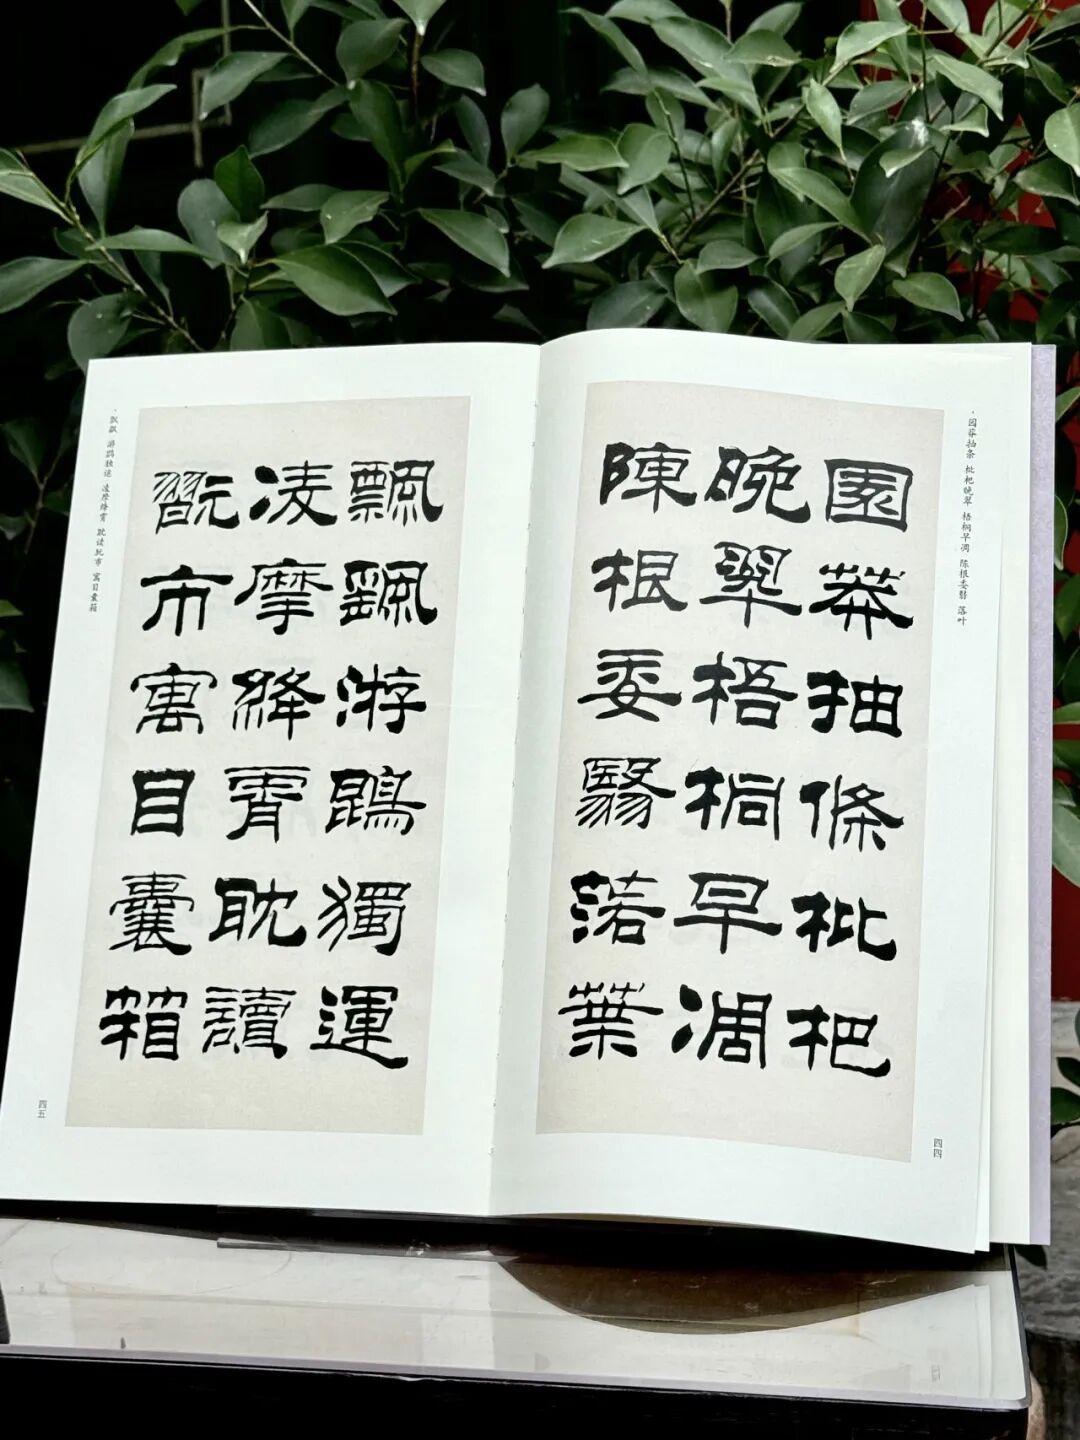 ·园莽抽条 枇杷晚翠 梧桐早凋 陈根委翳 落叶
園莽抽條枇杷
晚翠梧桐早凋
陳根委翳落葉
四四
·飘飖 游鹍独运 凌摩绛霄 耽读玩市 寓目囊箱
飄飖游鵾獨運
凌摩絳霄耽讀
翫市寓目囊箱
四五